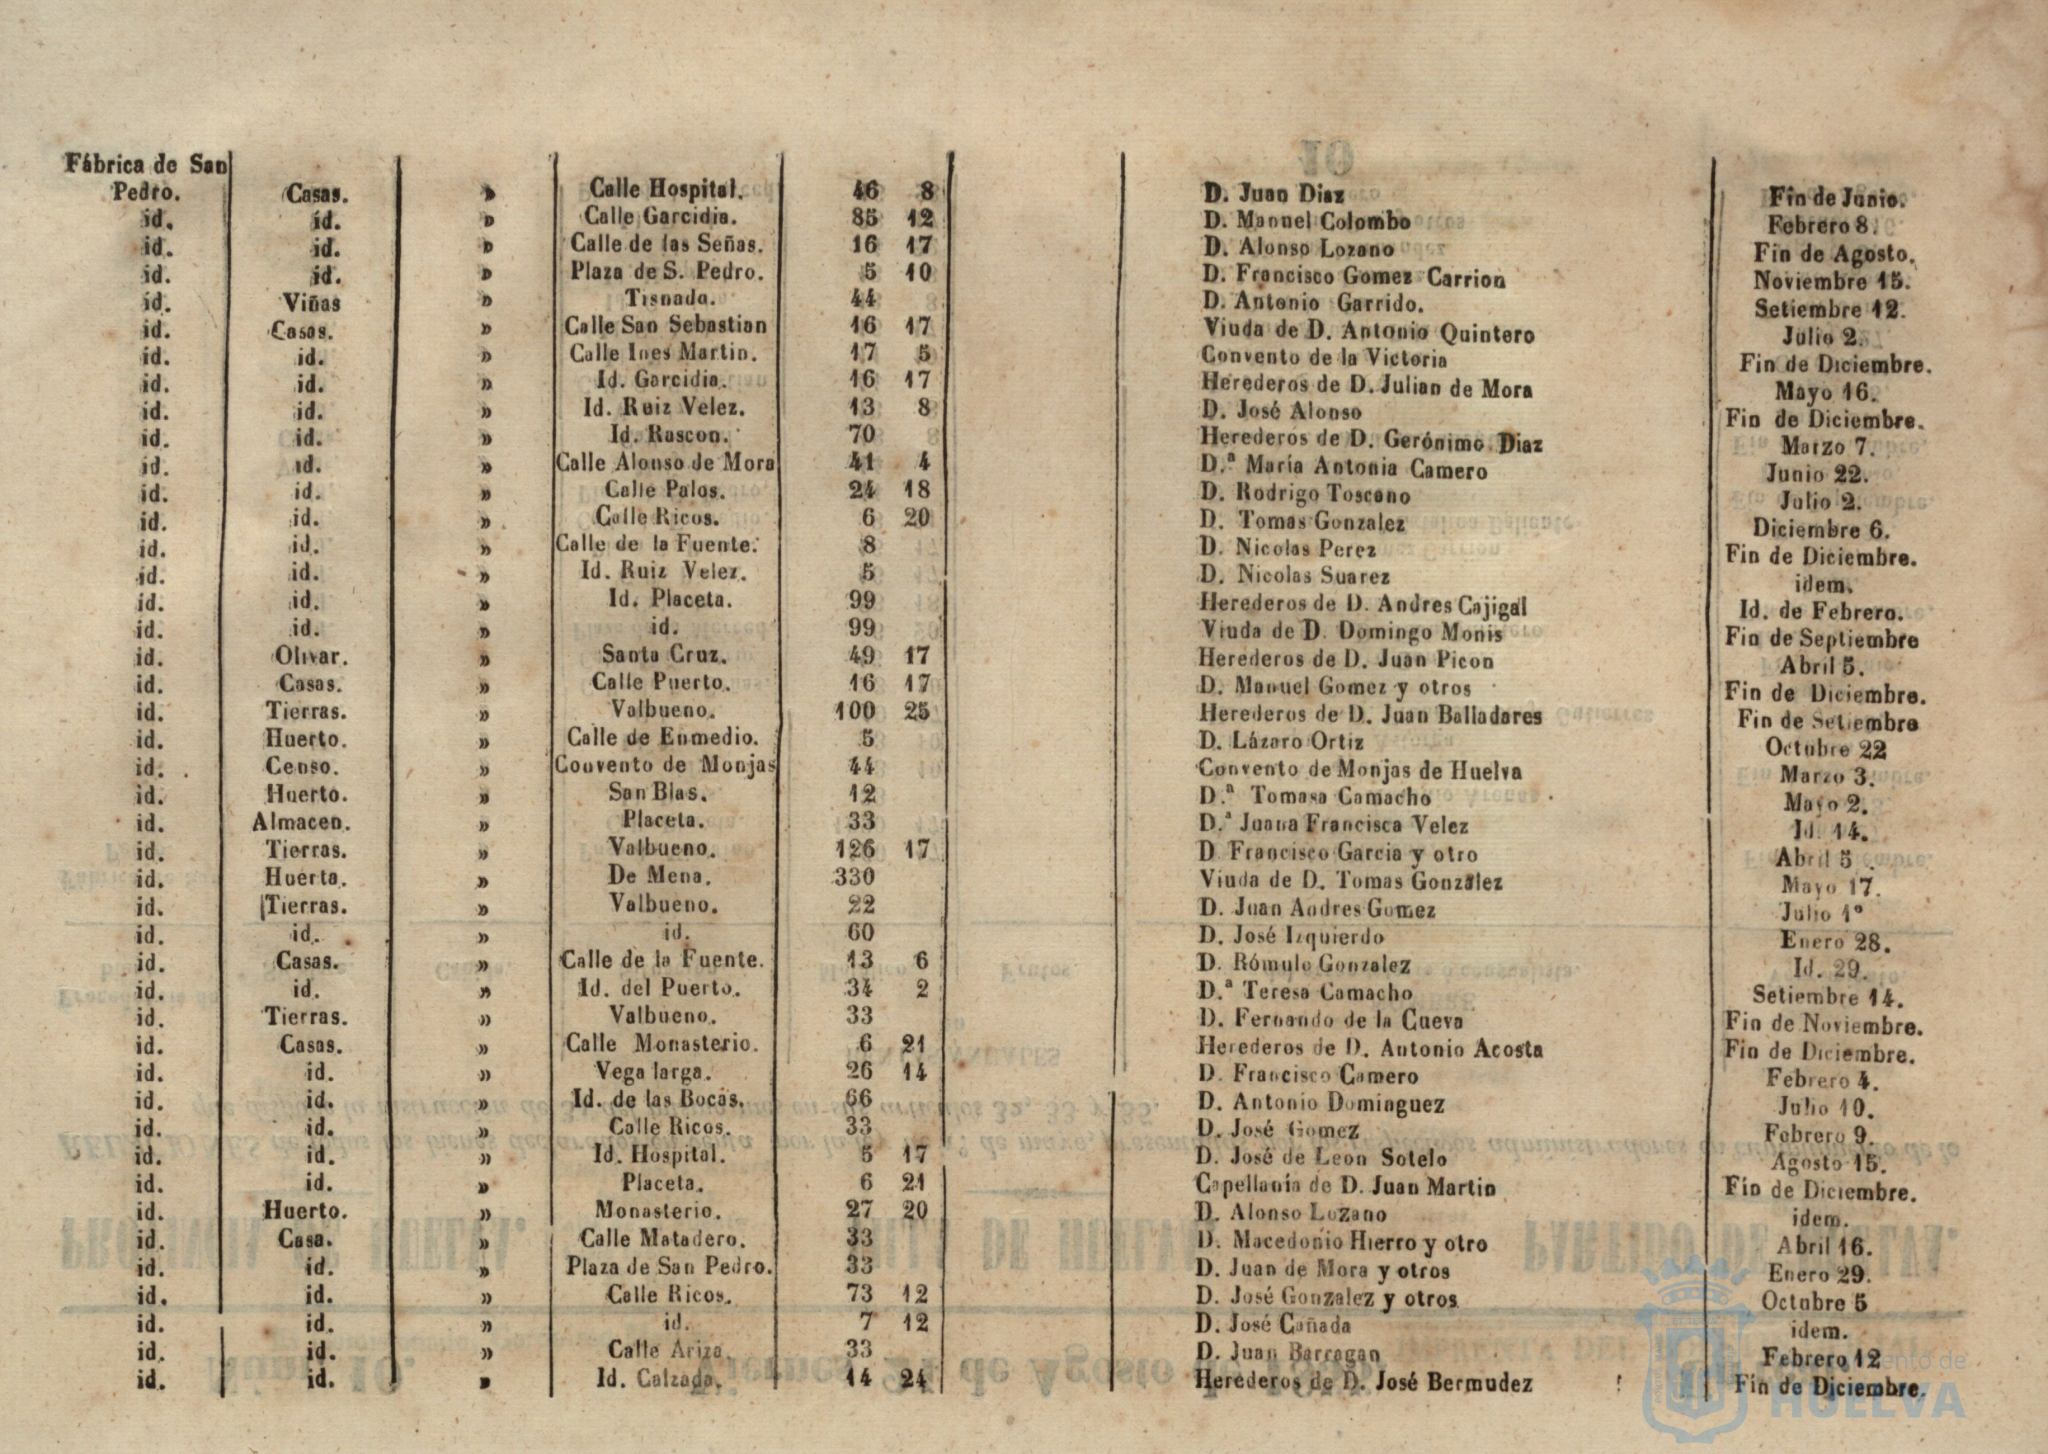 Fábrica de San
Pedro. Casas. » Calle Hospital. 46 8 D. Juan Diaz Fin de Junio.
id. id. » Calle Garcidia. 85 12 D. Manuel Colombo Febrero 8.
id. id. » Calle de las Señas. 16 17 D. Alonso Lozano Fin de Agosto.
id. id. » Plaza de S. Pedro. 5 10 D. Francisco Gomez Carrion Noviembre 15.
id. Viñas » Tisnada. 44 D. Antonio Garrido. Setiembre 12.
id. Casas. » Calle San Sebastian 16 17 Viuda de D. Antonio Quintero Julio 2.
id. id. » Calle Ines Martin. 17 5 Convento de la Victoria Fin de Diciembre.
id. id. » Id. Garcidia. 16 17 Herederos de D. Julian de Mora Mayo 16.
id. id. » Id. Ruiz Velez. 13 8 D. José Alonso Fin de Diciembre.
id. id. » Id. Rascon. 70 Herederos de D. Gerónimo Diaz Marzo 7.
id. id. » Calle Alonso de Mora 41 4 D.ª María Antonia Camero Junio 22.
id. id. » Calle Palos. 24 18 D. Rodrigo Toscano Julio 2.
id. id. » Calle Ricos. 6 20 D. Tomas Gonzalez Diciembre 6.
id. id. » Calle de la Fuente. 8 D. Nicolas Perez Fin de Diciembre.
id. id. » Id. Ruiz Velez. 5 D. Nicolas Suarez idem.
id. id. » Id. Placeta. 99 Herederos de D. Andres Cajigal Id. de Febrero.
id. id. » id. 99 Viuda de D. Domingo Monis Fin de Septiembre
id. Olivar. » Santa Cruz. 49 17 Herederos de D. Juan Picon Abril 5.
id. Casas. » Calle Puerto. 16 17 D. Manuel Gomez y otros Fin de Diciembre.
id. Tierras. » Valbueno. 100 25 Herederos de D. Juan Balladares Fin de Setiembre
id. Huerto. » Calle de Enmedio. 5 D. Lázaro Ortiz Octubre 22
id. Censo. » Convento de Monjas 44 Convento de Monjas de Huelva Marzo 3.
id. Huerto. » San Blas. 12 D.ª Tomasa Camacho Mayo 2.
id. Almacen. » Placeta. 33 D.ª Juana Francisca Velez Id. 14.
id. Tierras. » Valbueno. 126 17 D. Francisco Garcia y otro Abril 5
id. Huerta. » De Mena. 330 Viuda de D. Tomas Gonzalez Mayo 17.
id. Tierras. » Valbueno. 22 D. Juan Andres Gomez Julio 1º
id. id. » id. 60 D. José Izquierdo Enero 28.
id. Casas. » Calle de la Fuente. 13 6 D. Rómulo Gonzalez Id. 29.
id. id. » Id. del Puerto. 34 2 D.ª Teresa Camacho Setiembre 14.
id. Tierras. » Valbueno. 33 D. Fernando de la Cueva Fin de Noviembre.
id. Casas. » Calle Monasterio. 6 21 Herederos de D. Antonio Acosta Fin de Diciembre.
id. id. » Vega larga. 26 14 D. Francisco Camero Febrero 4.
id. id. » Id. de las Bocas. 66 D. Antonio Dominguez Julio 10.
id. id. » Calle Ricos. 33 D. José Gomez Febrero 9.
id. id. » Id. Hospital. 5 17 D. José de Leon Sotelo Agosto 15.
id. id. » Placeta. 6 21 Capellanía de D. Juan Martin Fin de Diciembre.
id. Huerto. » Monasterio. 27 20 D. Alonso Lozano idem.
id. Casa. » Calle Matadero. 33 D. Macedonio Hierro y otro Abril 16.
id. id. » Plaza de San Pedro. 33 D. Juan de Mora y otros Enero 29.
id. id. » Calle Ricos. 73 12 D. José Gonzalez y otros Octubre 5
id. id. » id. 7 12 D. José Cañada idem.
id. id. » Calle Ariza. 33 D. Juan Barragan Febrero 12
id. id. » Id. Calzada. 14 24 Herederos de D. José Bermudez Fin de Diciembre.
HUELVA